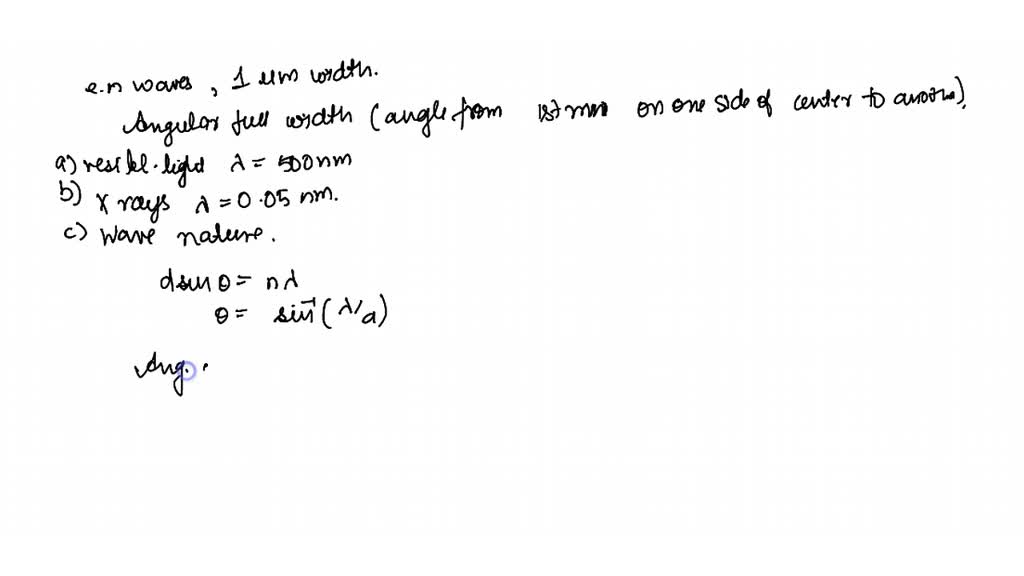 e.m waves, 1 um width.
Angular full width (angle from 1st min on one side of center to another).
a) visibl. light λ = 500 nm
b) X rays λ = 0.05 nm.
c) Wave nature.
dsin θ = nλ
θ = sin⁻¹(λ/a)
Ang.